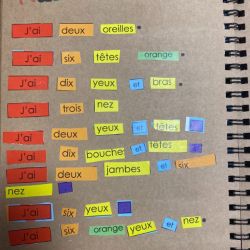 J'ai deux oreilles.
J'ai six têtes orange.
J'ai dix yeux et bras.
J'ai trois nez
J'ai deux yeux et têtes
J'ai dix bouche et têtes
J'ai deux jambes et six
nez
J'ai six yeux
J'ai six orange yeux et nez.